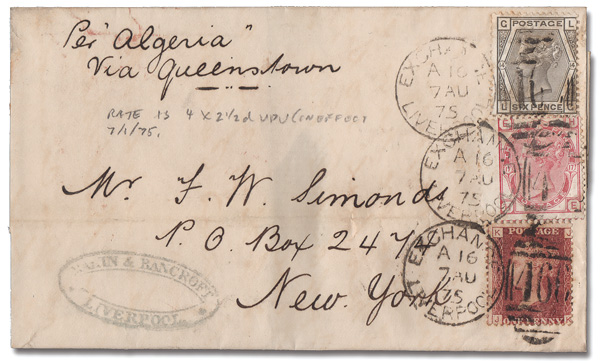 Per "Algeria"
Via Queenstown
RATE IS 4 X 2½d UPU (IN EFFECT
7/1/75.
Mr. F. W. Simonds
P. O. Box 247
New York
& BANCROFT
LIVERPOOL
EXCHANGE
A 16
7 AU
75
LIVERPOOL
EXCHANGE
A 16
7 AU
75
LIVERPOOL
EXCHANGE
A 16
7 AU
75
LIVERPOOL
G POSTAGE L
L SIX PENCE G
E
K POSTAGE
466